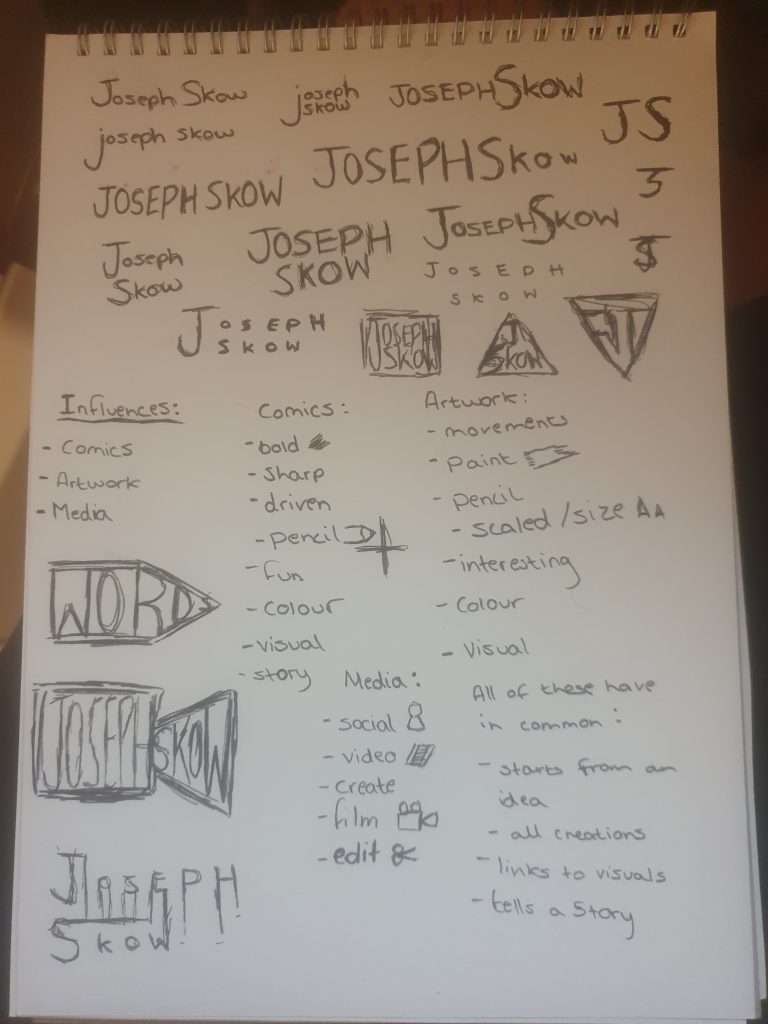 Joseph Skow
joseph
skow
JOSEPHSKOW
joseph skow
JS
JOSEPHSKOW
JOSEPH SKOW
JOSEPHSKOW
Joseph
Skow
JOSEPH
SKOW
JOSEPH
SKOW
JOSEPH
SKOW
JOSEPH
SKOW
J
SKOW
Influences:
- Comics
- Artwork
- Media
Comics:
- bold
- sharp
- driven
- pencil
- fun
- colour
- visual
- story
Artwork:
- movements
- paint
- pencil
- scaled/size AA
- interesting
- colour
- visual
WORDS
JOSEPH SKOW
JOSEPH
SKOW
Media:
- social
- video
- create
- film
- edit
All of these have
in common:
- starts from an
idea
- all creations
- links to visuals
- tells a story